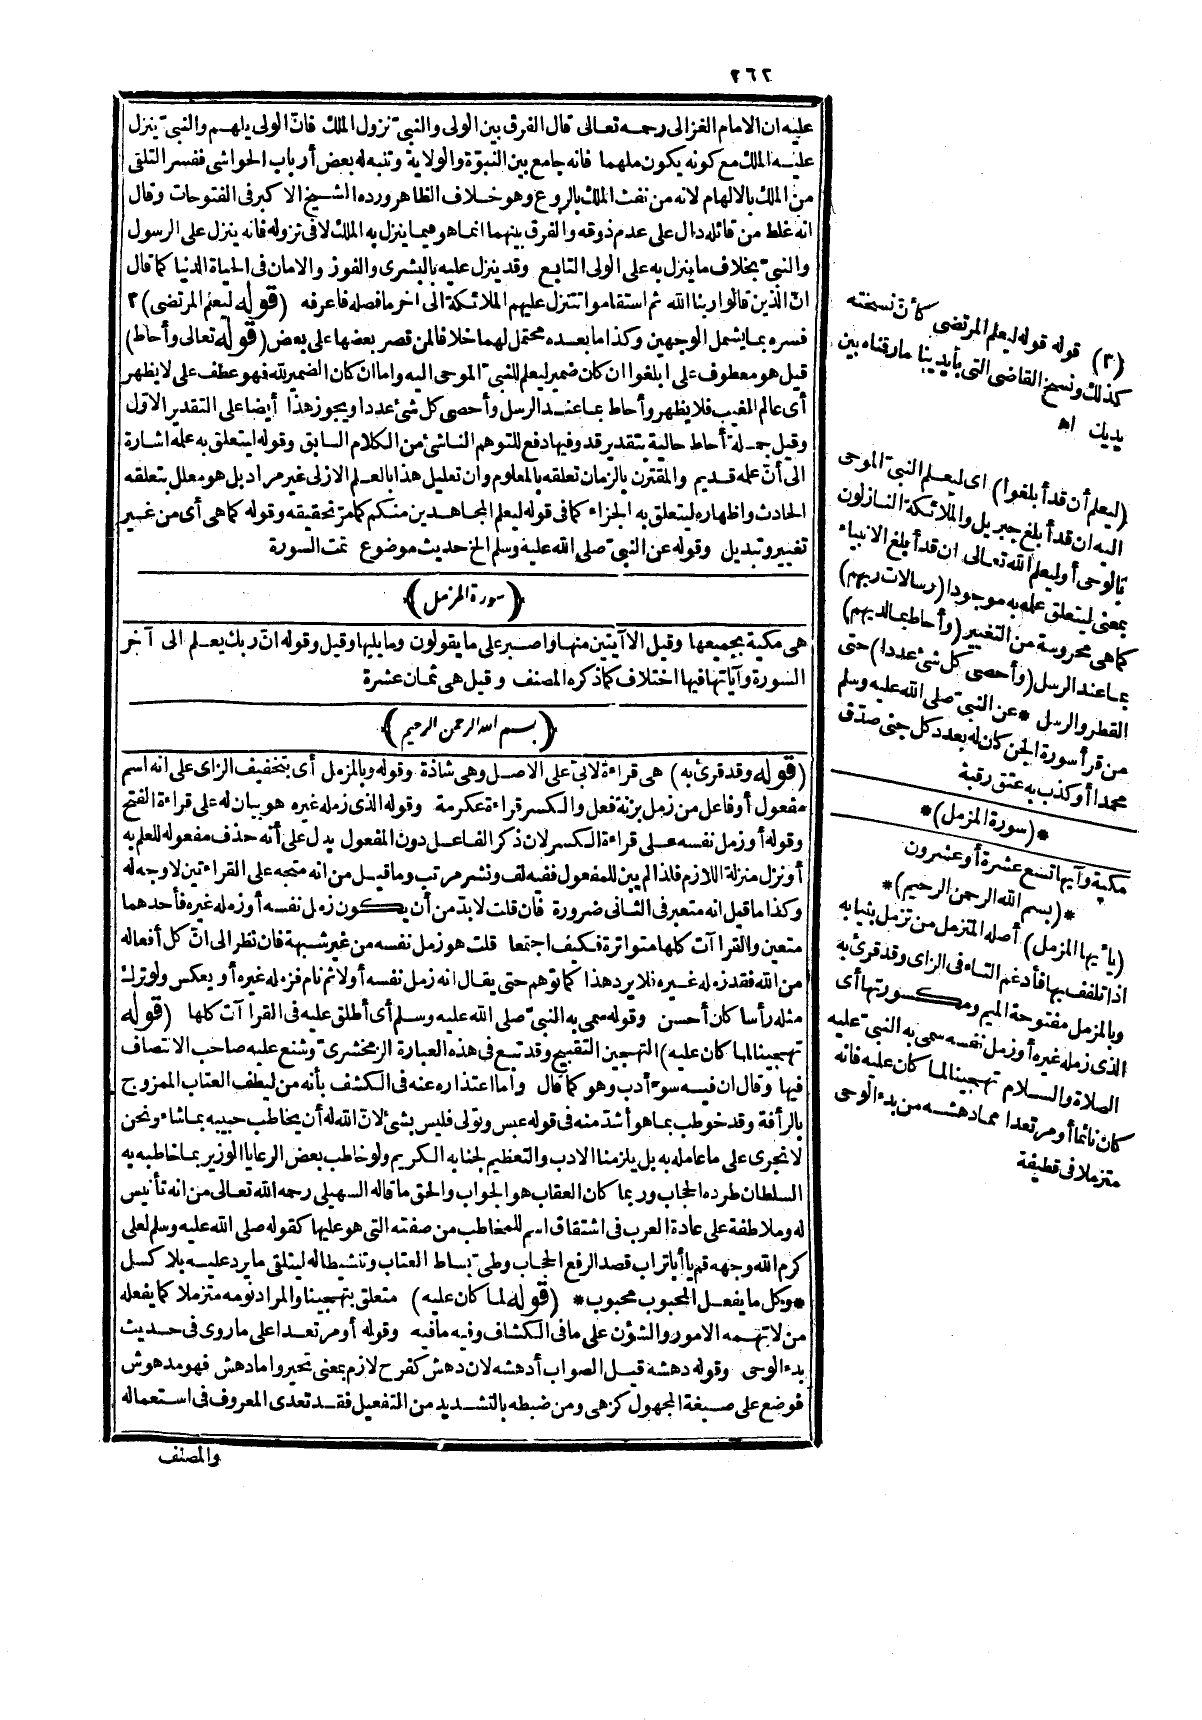 ٢٦٢
عليه ان الامام الغزالى رحمه تعالى قال الفرق بين الولى والنبىّ نزول الملك فانّ الولى يلهم والنبىّ ينزل
عليه الملك مع كونه يكون ملهما فانه جامع بين النبوّة والولاية وتنبه له بعض أرباب الحواشى ففسر التلقى
من الملك بالالهام لانه من نفث الملك بالروع وهو خلاف الظاهر ورده الشيخ الاكبر فى الفتوحات وقال
انه غلط من قائله دال على عدم ذوقه والفرق بينهما انما هو فيما ينزل به الملك لا فى نزوله فانه ينزل على الرسول
والنبىّ بخلاف ما ينزل به على الولى التابع وقد ينزل عليه بالبشرى والفوز والامان فى الحياة الدنيا كما قال
انّ الذين قالوا ربنا الله ثم استقاموا تتنزل عليهم الملائكة الى اخر ما فصله فاعرفه (قوله ليعلم المرتضى) ٢
فسره بما يشمل الوجهين وكذا ما بعده محتمل لهما خلافا لمن قصر بعضها على بعض (قوله تعالى وأحاط)
قيل هو معطوف على ابلغوا ان كان ضمير ليعلم للنبىّ الموحى اليه واما ان كان الضمير لله فهو عطف على لا يظهر
أى عالم الغيب فلا يظهر وأحاط بما عند الرسل وأحصى كل شئ عددا ويجوز هذا أيضا على التقدير الاوّل
وقيل جملة أحاط حالية بتقدير قد وفيها دفع للتوهم الناشئ من الكلام السابق وقوله ليتعلق به علمه اشارة
الى أنّ علمه قديم والمقترن بالزمان تعلقه بالمعلوم وان تعليل هذا بالعلم الازلى غير مراد بل هو معلل بتعلقه
الحادث واظهاره ليتعلق به الجزاء كما فى قوله ليعلم المجاهدين منكم كما مرّ تحقيقه وقوله كما هى أى من غير
تغيير وتبديل وقوله عن النبىّ صلى الله عليه وسلم الخ حديث موضوع تمت السورة
﴿سورة المزمل﴾
هى مكية بجميعها وقيل الا آيتين منها واصبر على ما يقولون وما يليها وقيل وقوله انّ ربك يعلم الى آخر
السورة وآياتها فيها اختلاف كما ذكره المصنف وقيل هى ثمان عشرة
﴿بسم الله الرحمن الرحيم﴾
(قوله وقد قرئ به) هى قراءة لابىّ على الاصل وهى شاذة وقوله وبالمزمل أى بتخفيف الزاى على انه اسم
مفعول أو فاعل من زمل بزنة فعل والكسر قراءة عكرمة وقوله الذى زمله غيره هو بيان له على قراءة الفتح
وقوله أو زمل نفسه على قراءة الكسر لان ذكر الفاعل دون المفعول يدل على أنه حذف مفعوله للعلم به
أو نزل منزلة اللازم فلذا لم يبن للمفعول ففيه لف ونشر مرتب وما قيل من انه متجه على القراءتين لا وجه له
وكذا ما قيل انه متعين فى الثانى ضرورة فان قلت لا بدّ من أن يكون زمل نفسه أو زمله غيره فأحدهما
متعين والقراآت كلها متواترة فكيف اجتمعا قلت هو زمل نفسه من غير شبهة فان نظر الى انّ كل أفعاله
من الله فقد زمله غيره فلا يرد هذا كما توهم حتى يقال انه زمل نفسه أولا ثم نام فزمله غيره أو بعكس ولو ترك
مثله رأسا كان أحسن وقوله سمى به النبىّ صلى الله عليه وسلم أى أطلق عليه فى القراآت كلها (قوله
تهجينا لما كان عليه) التهجين التقبيح وقد تبع فى هذه العبارة الزمخشرىّ وشنع عليه صاحب الانتصاف
فيها وقال ان فيه سوء أدب وهو كما قال وأما اعتذاره عنه فى الكشف بأنه من لطف العتاب الممزوج
بالرأفة وقد خوطب بما هو أشدّ منه فى قوله عبس وتولى فليس بشئ لانّ الله له أن يخاطب حبيبه بما شاء ونحن
لا نجرى على ما عامله به بل يلزمنا الادب والتعظيم لجنابه الكريم ولو خاطب بعض الرعايا الوزير بما خاطبه به
السلطان طرده الحجاب وربما كان العقاب هو الجواب والحق ما قاله السهيلى رحمه الله تعالى من انه تأنيس
له وملاطفة على عادة العرب فى اشتقاق اسم للمخاطب من صفته التى هو عليها كقوله صلى الله عليه وسلم لعلى
كرم الله وجهه قم يا أبا تراب قصد الرفع الحجاب وطىّ بساط العتاب وتنشيطا له ليتلقى ما يرد عليه بلا كسل
*وكل ما يفعل المحبوب محبوب* (قوله لما كان عليه) متعلق بتهجينا والمراد نومه متزملا كما يفعله
من لا تهمه الامور والشؤن على ما فى الكشاف وفيه ما فيه وقوله أو مرتعدا على ما روى فى حديث
بدء الوحى وقوله دهشه قيل الصواب أدهشه لان دهش كفرح لازم بمعنى تحير واما دهش فهو مدهوش
فوضع على صيغة المجهول كزهى ومن ضبطه بالتشديد من التفعيل فقد تعدى المعروف فى استعماله
والمصنف
(٢) قوله قوله ليعلم المرتضى كأن نسخته
كذلك ونسخ القاضى التى بأيدينا ما رقناه بين
يديك اه
(ليعلم أن قد أبلغوا) اى ليعلم النبىّ الموحى
اليه ان قد أبلغ جبريل والملائكة النازلون
بالوحى أو ليعلم الله تعالى ان قد أبلغ الانبياء
بمعنى ليتعلق علمه به موجودا (رسالات ربهم)
كما هى محروسة من التغيير (وأحاط بما لديهم)
بما عند الرسل (وأحصى كل شئ عددا) حتى
القطر والرمل *عن النبىّ صلى الله عليه وسلم
من قرأ سورة الجن كان له بعدد كل جنى صدّق
محمدا أو كذب به عتق رقبة
*(سورة المزمل)*
مكية وآيها تسع عشرة أو عشرون
*(بسم الله الرحمن الرحيم)*
(يا أيها المزمل) أصله المتزمل من تزمل بثيابه
اذا تلفف بها فأدغم التاء فى الزاى وقد قرئ به
وبالمزمل مفتوحة الميم ومكسورتها أى
الذى زمله غيره أو زمل نفسه سمى به النبىّ عليه
الصلاة والسلام تهجينا لما كان عليه فانه
كان نائما أو مرتعدا مما دهشه من بدء الوحى
متزملا فى قطيفة